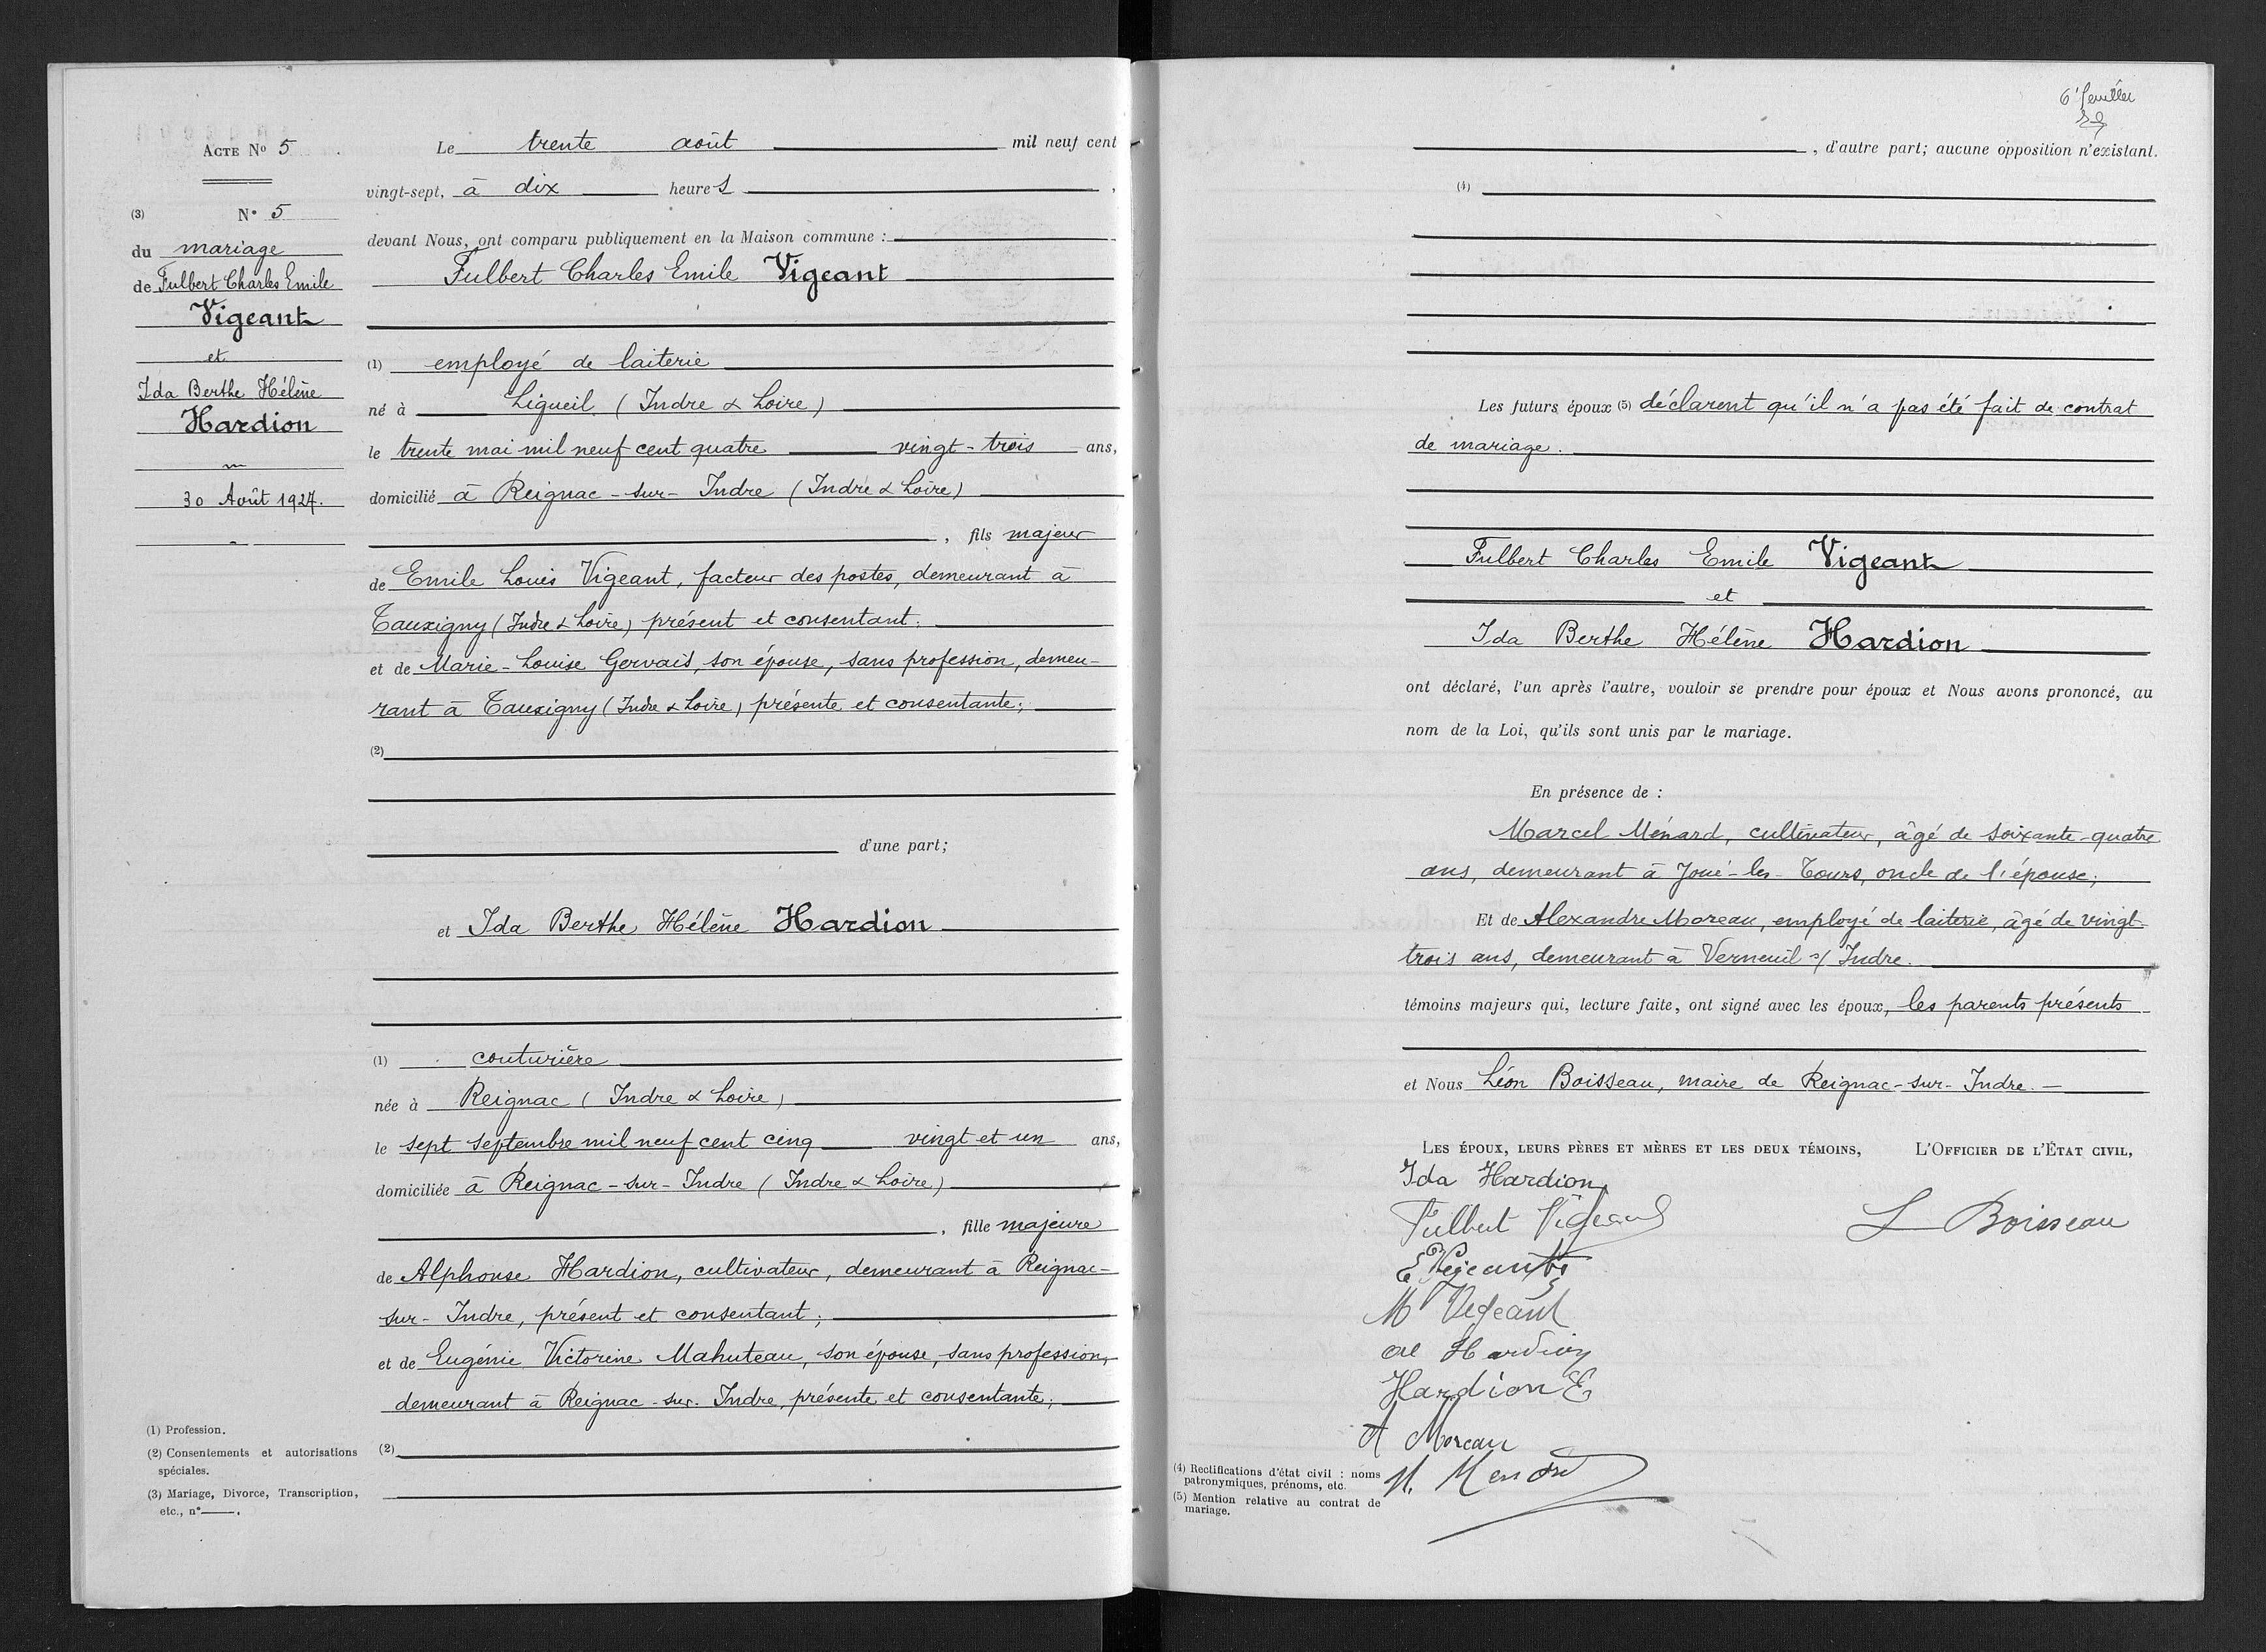 ACTE No 5
(3) N° 5
du mariage
de Fulbert Charles Emile
Vigeant
et
Ida Berthe Hélène
Hardion
30 Août 1927.
Le trente août mil neuf cent
vingt-sept, à dix heures ,
devant Nous, ont comparu publiquement en la Maison commune :
Fulbert Charles Emile Vigeant
(1) employé de laiterie
né à Ligueil (Indre & Loire)
le trente mai mil neuf cent quatre vingt-trois ans,
domicilié à Reignac-sur-Indre (Indre & Loire)
, fils majeur
de Emile Louis Vigeant, facteur des postes, demeurant à
Tauxigny (Indre & Loire) présent et consentant;
et de Marie-Louise Gervais, son épouse, sans profession, demeu-
rant à Tauxigny (Indre & Loire) présente et consentante;
(2)
d'une part;
et Ida Berthe Hélène Hardion
(1) couturière
née à Reignac (Indre & Loire)
le sept septembre mil neuf cent cinq vingt et un ans,
domiciliée à Reignac-sur-Indre (Indre & Loire)
, fille majeure
de Alphonse Hardion, cultivateur, demeurant à Reignac-
sur-Indre, présent et consentant;
et de Eugénie Victorine Mahuteau, son épouse, sans profession,
demeurant à Reignac-sur-Indre, présente et consentante;
(2)
(1) Profession.
(2) Consentements et autorisations
spéciales.
(3) Mariage, Divorce, Transcription,
etc., n° .
6e feuillet
, d'autre part; aucune opposition n'existant.
(4)
Les futurs époux (5) déclarent qu'il n'a pas été fait de contrat
de mariage.
Fulbert Charles Emile Vigeant
et
Ida Berthe Hélène Hardion
ont déclaré, l'un après l'autre, vouloir se prendre pour époux et Nous avons prononcé, au
nom de la Loi, qu'ils sont unis par le mariage.
En présence de :
Marcel Ménard, cultivateur, âgé de soixante-quatre
ans, demeurant à Joué-les-Tours, oncle de l'épouse;
Et de Alexandre Moreau, employé de laiterie, âgé de vingt-
trois ans, demeurant à Verneuil s/ Indre.
témoins majeurs qui, lecture faite, ont signé avec les époux, les parents présents
et Nous Léon Boisseau, maire de Reignac-sur-Indre.
LES ÉPOUX, LEURS PÈRES ET MÈRES ET LES DEUX TÉMOINS, L'OFFICIER DE L'ÉTAT CIVIL,
Ida Hardion
Fulbert Vigeant
L Boisseau
E Vigeant
M Vigeant
al Hardion
Hardion E
A Moreau
M. Menard
(4) Rectifications d'état civil : noms
patronymiques, prénoms, etc.
(5) Mention relative au contrat de
mariage.